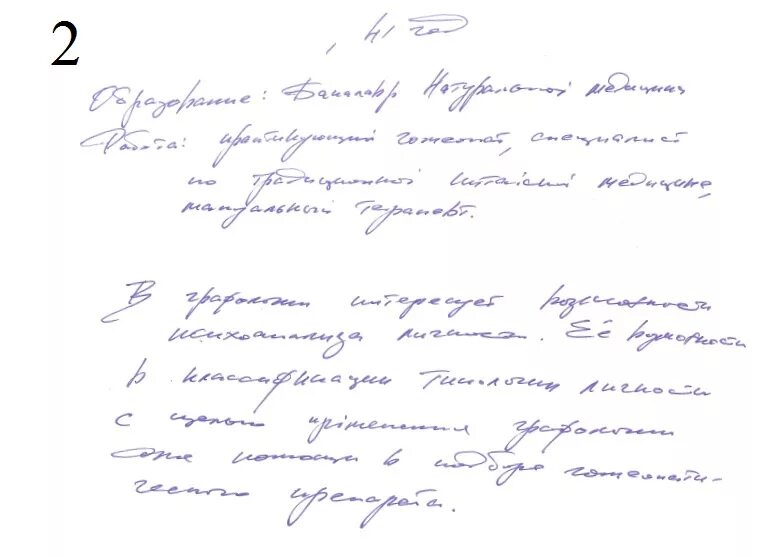 2
, 41 год
Образование: Бакалавр Натуральной медицины
Работа: практикующий гомеопат, специалист
по традиционной китайской медицине,
мануальный терапевт.
В графологии интересует возможности
психоанализа личности. Её возможности
в классификации типологии личности
с целью применения графологии
для помощи в подборе гомеопати-
ческого препарата.